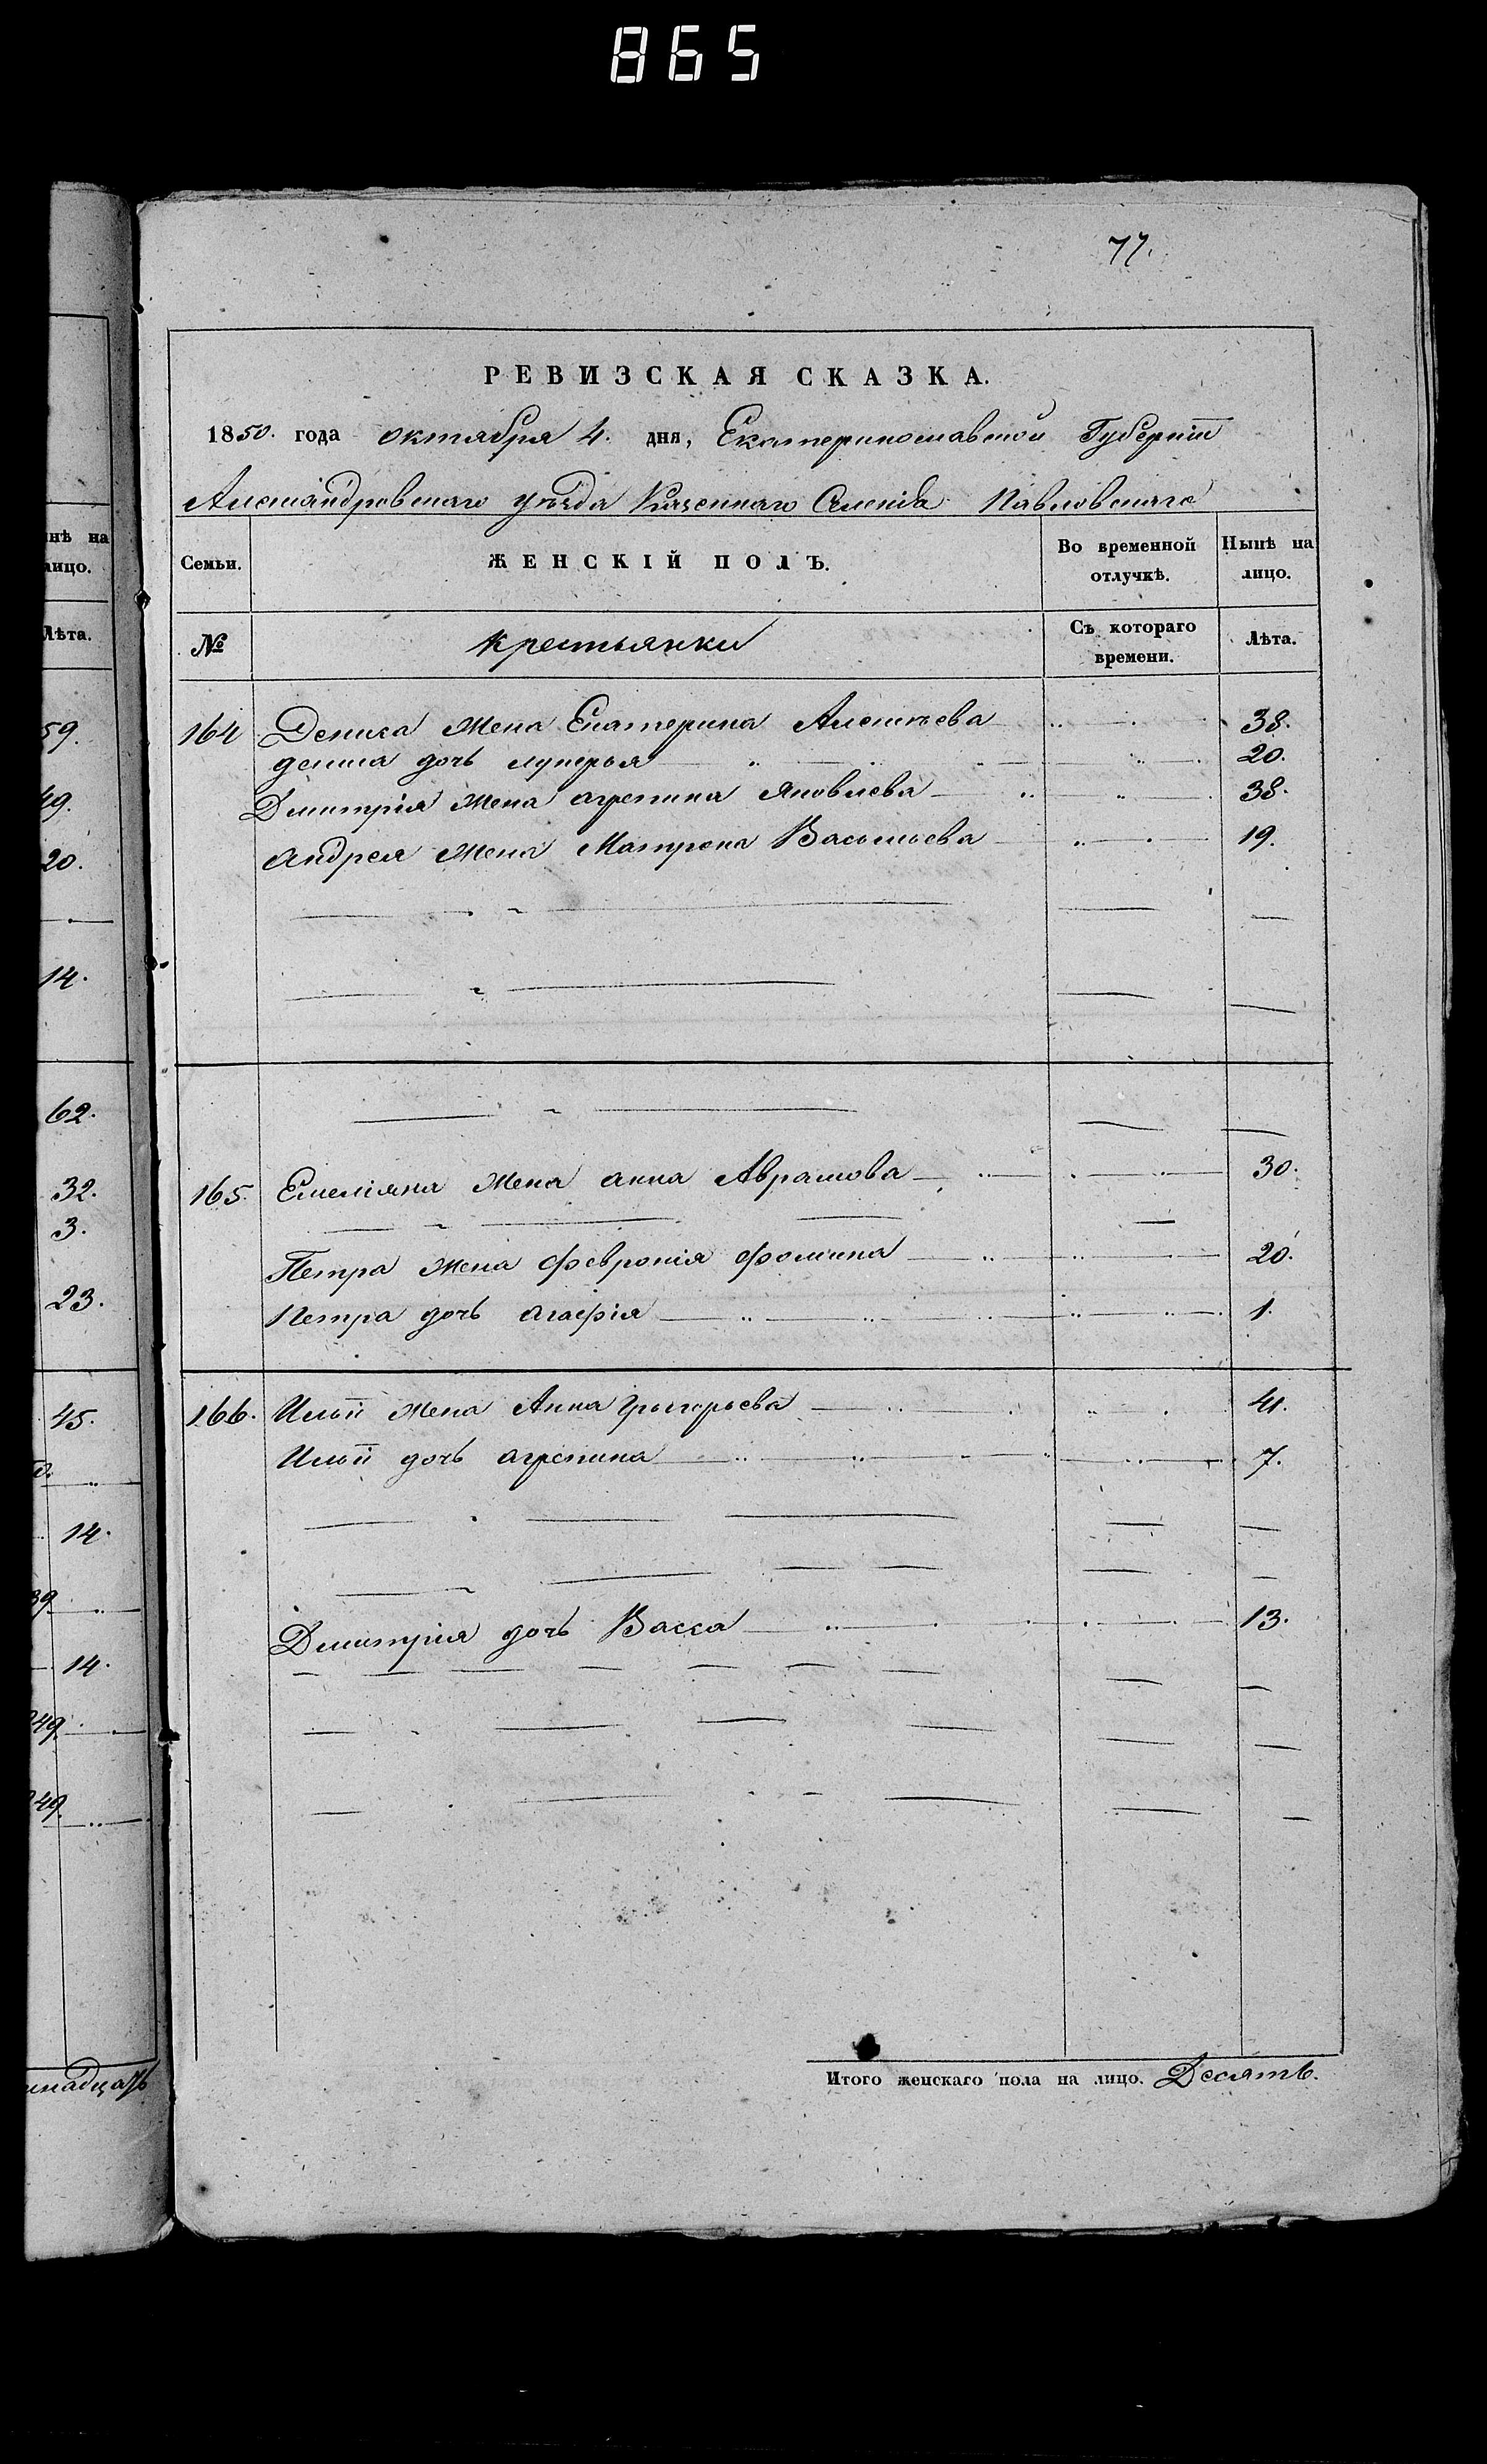 865
77.
РЕВИЗСКАЯ СКАЗКА.
1850. года октября 4. дня, Екатеринославской Губернiи
Александровскаго уѣзда Казеннаго Селенiя Павловскаго
Семьи. ЖЕНСКIЙ ПОЛЪ. Во временной отлучкѣ. Нынѣ на лицо.
№ крестьянки Съ котораго времени. Лѣта.
164 Дениса жена Екатерина Алексѣева 38.
дениса дочь лукерья 20.
Дмитрiя жена агрепина Яковлева 38.
андрея жена Матрена Васильева 19.
165. Емелiяна жена анна Аврамова 30.
Петра жена феѵронiя фомина 20.
Петра дочь агафiя 1.
166. Ильи жена Анна Григорьева 41.
Ильи дочь агрепина 7.
Дмитрiя дочь Васса 13.
Итого женскаго пола на лицо. Десять.
нѣ на
лицо.
Лѣта.
59.
49.
20.
14.
62.
32.
3.
23.
45.
14.
39
14.
49.
49.
надцать